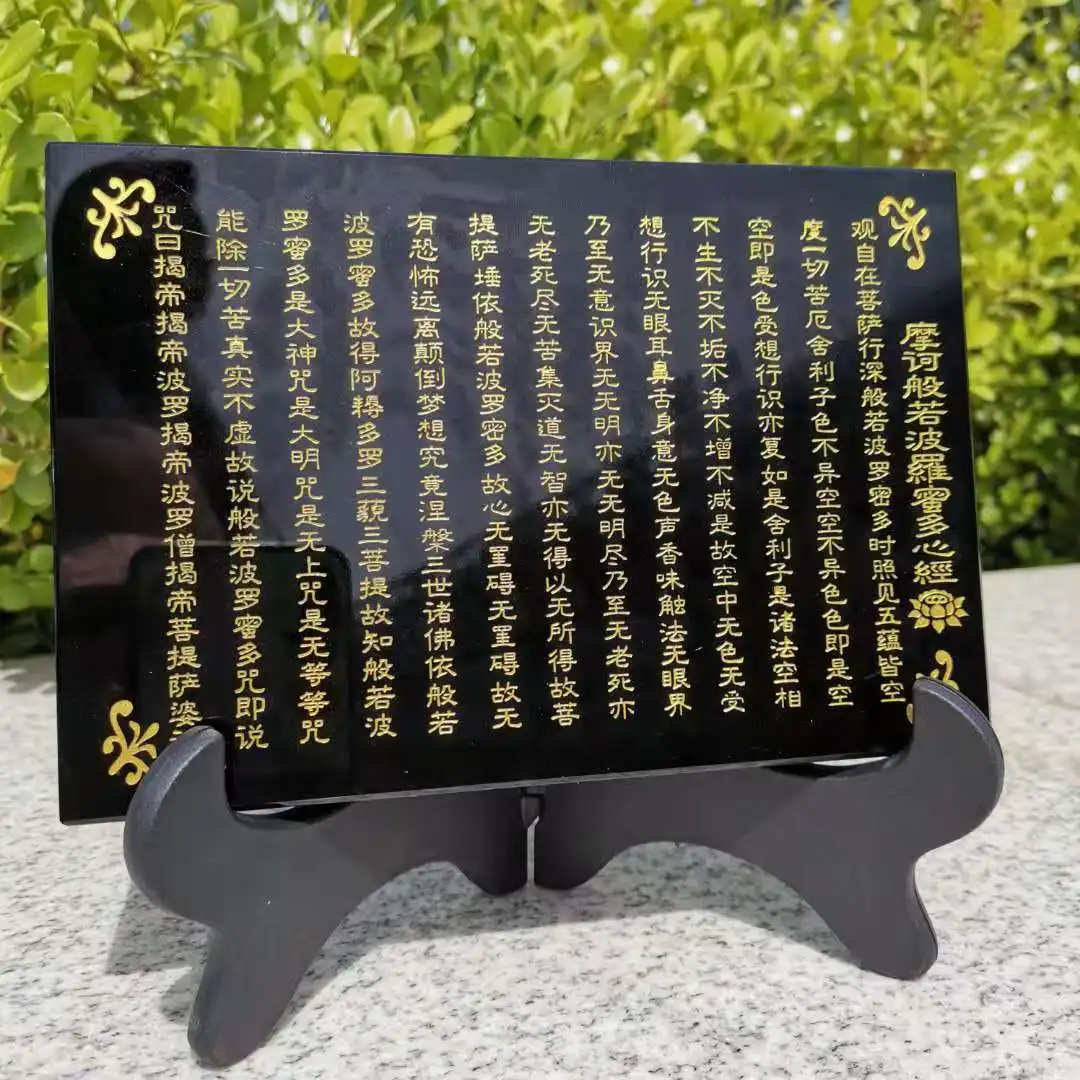 摩诃般若波羅蜜多心經
观自在菩萨行深般若波罗蜜多时照见五蕴皆空
度一切苦厄舍利子色不异空空不异色色即是空
空即是色受想行识亦复如是舍利子是诸法空相
不生不灭不垢不净不增不减是故空中无色无受
想行识无眼耳鼻舌身意无色声香味触法无眼界
乃至无意识界无无明亦无无明尽乃至无老死亦
无老死尽无苦集灭道无智亦无得以无所得故菩
提萨埵依般若波罗密多故心无罣碍无罣碍故无
有恐怖远离颠倒梦想究竟涅槃三世诸佛依般若
波罗蜜多故得阿耨多罗三藐三菩提故知般若波
罗蜜多是大神咒是大明咒是无上咒是无等等咒
能除一切苦真实不虚故说般若波罗蜜多咒即说
咒曰揭帝揭帝波罗揭帝波罗僧揭帝菩提萨婆